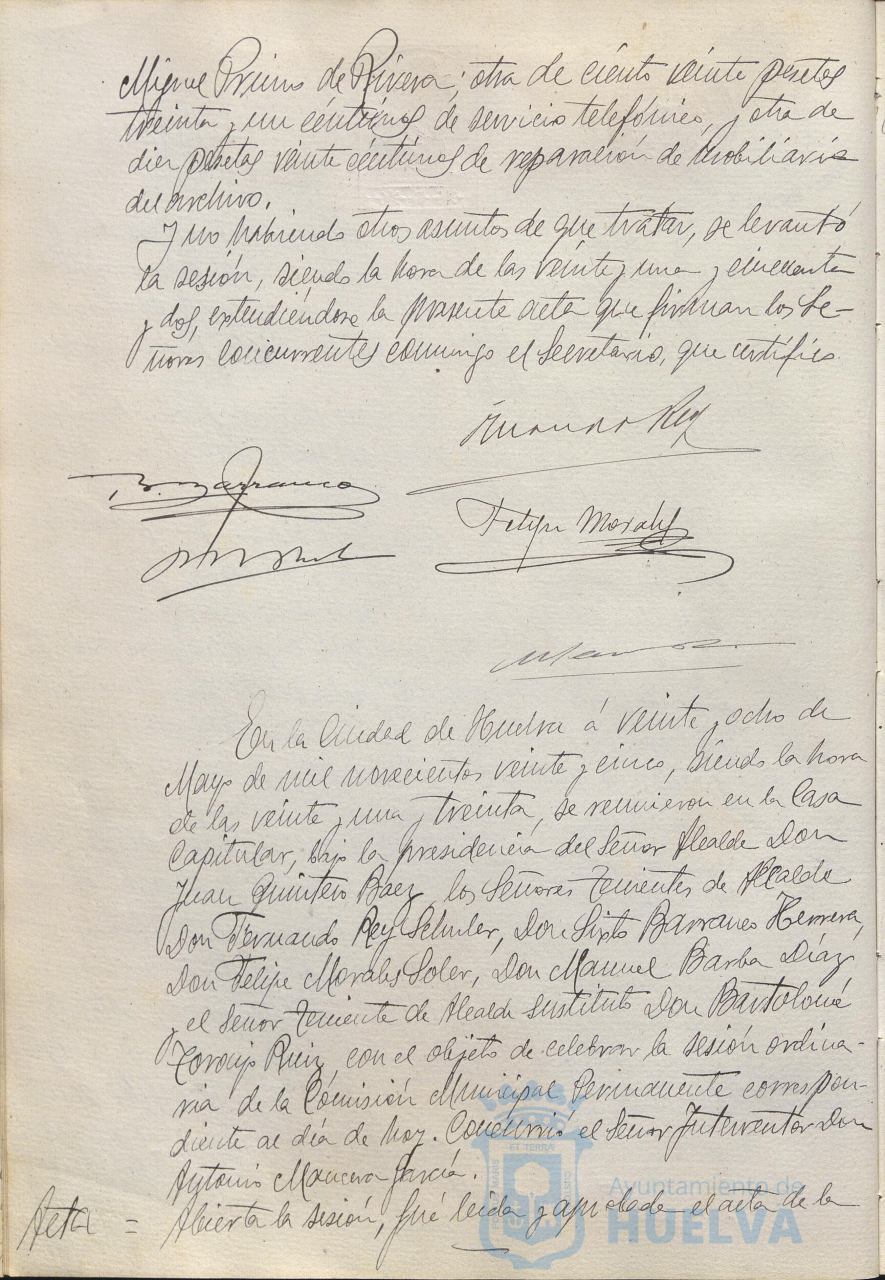 Miguel Primo de Rivera; otra de ciento veinte pesetas
treinta y un céntimos de servicio telefónico, y otra de
diez pesetas veinte céntimos de reparación de mobiliario
del archivo.
Y no habiendo otros asuntos de que tratar, se levantó
la sesión, siendo la hora de las veinte y una y cincuenta
y dos, extendiéndose la presente acta que firman los Se-
ñores concurrentes conmigo el Secretario, que certifico.
Fernando Rey
Barranco
Felipe Morales
En la Ciudad de Huelva á veinte y ocho de
Mayo de mil novecientos veinte y cinco, siendo la hora
de las veinte y una y treinta, se reunieron en la Casa
Capitular, bajo la presidencia del Señor Alcalde Don
Juan Quintero Baez, los Señores Tenientes de Alcalde
Don Fernando Rey Schuler, Don Sixto Barranco Herrera,
Don Felipe Morales Soler, Don Manuel Barba Díaz
y el Señor Teniente de Alcalde sustituto Don Bartolomé
Toronjo Ruiz, con el objeto de celebrar la sesión ordina-
ria de la Comisión Municipal Permanente correspon-
diente al día de hoy. Concurrió el Señor Interventor Don
Antonio Mancera García.
Acta = Abierta la sesión, fué leída y aprobada el acta de la
Ayuntamiento de
HUELVA